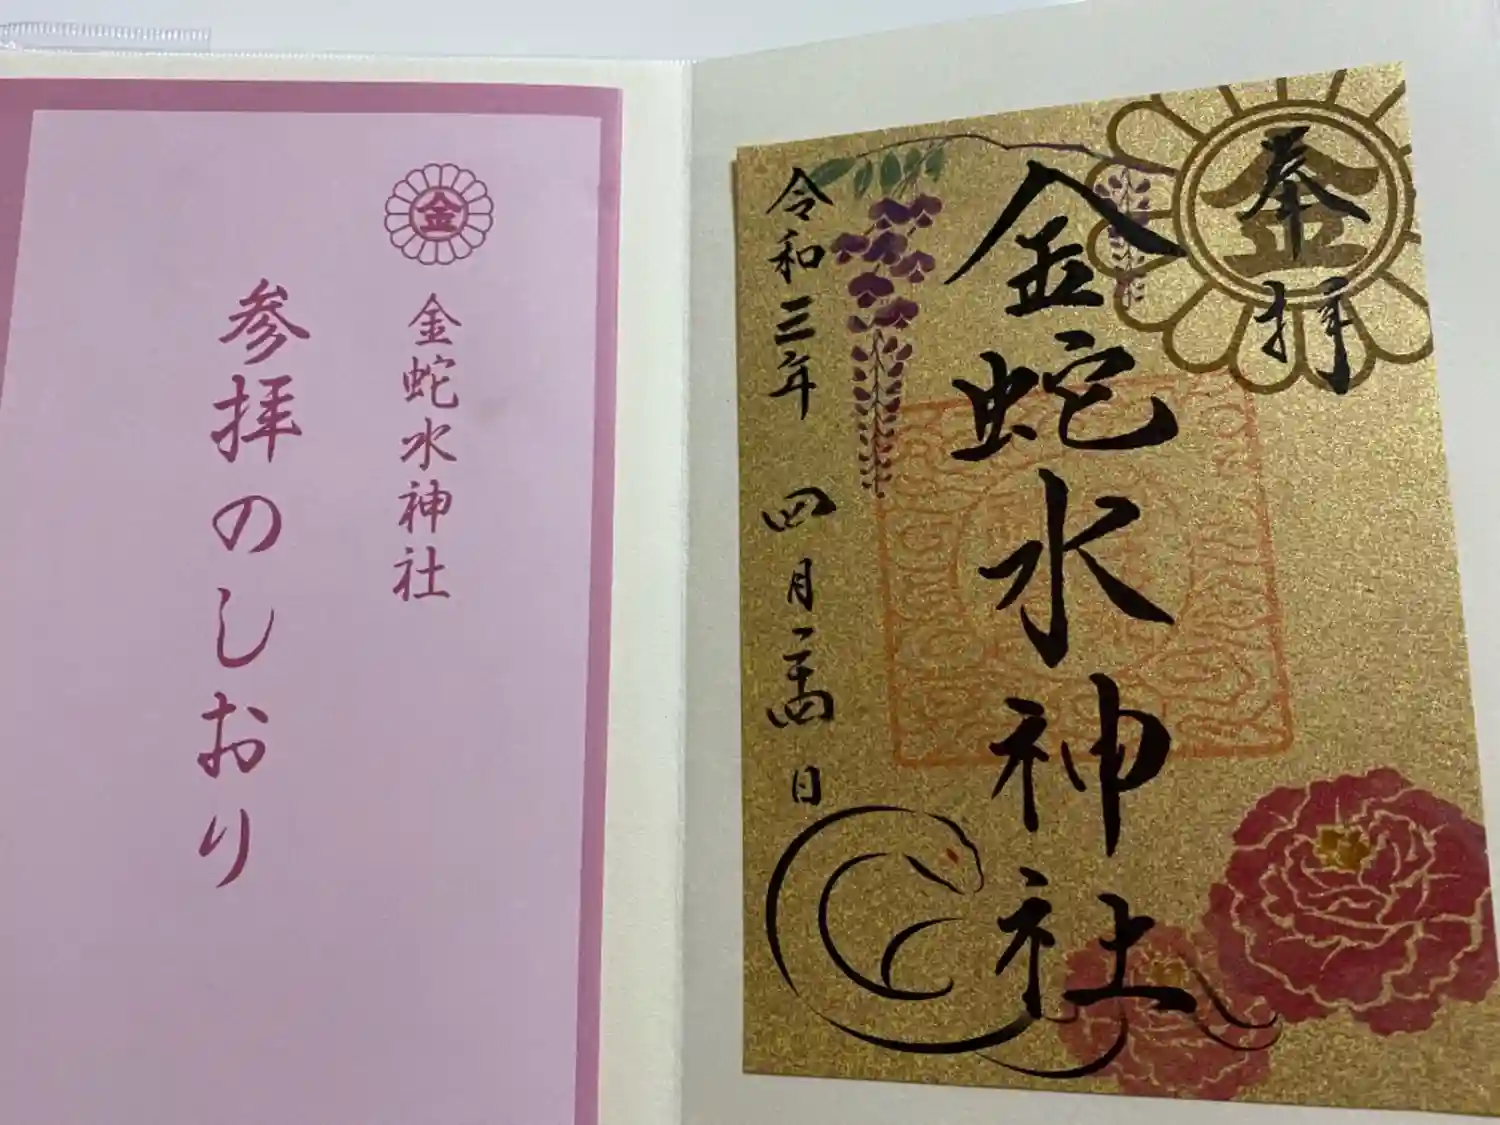 金
金蛇水神社
参拝のしおり
金
奉拝
金蛇水神社
令和三年 四月二十四日